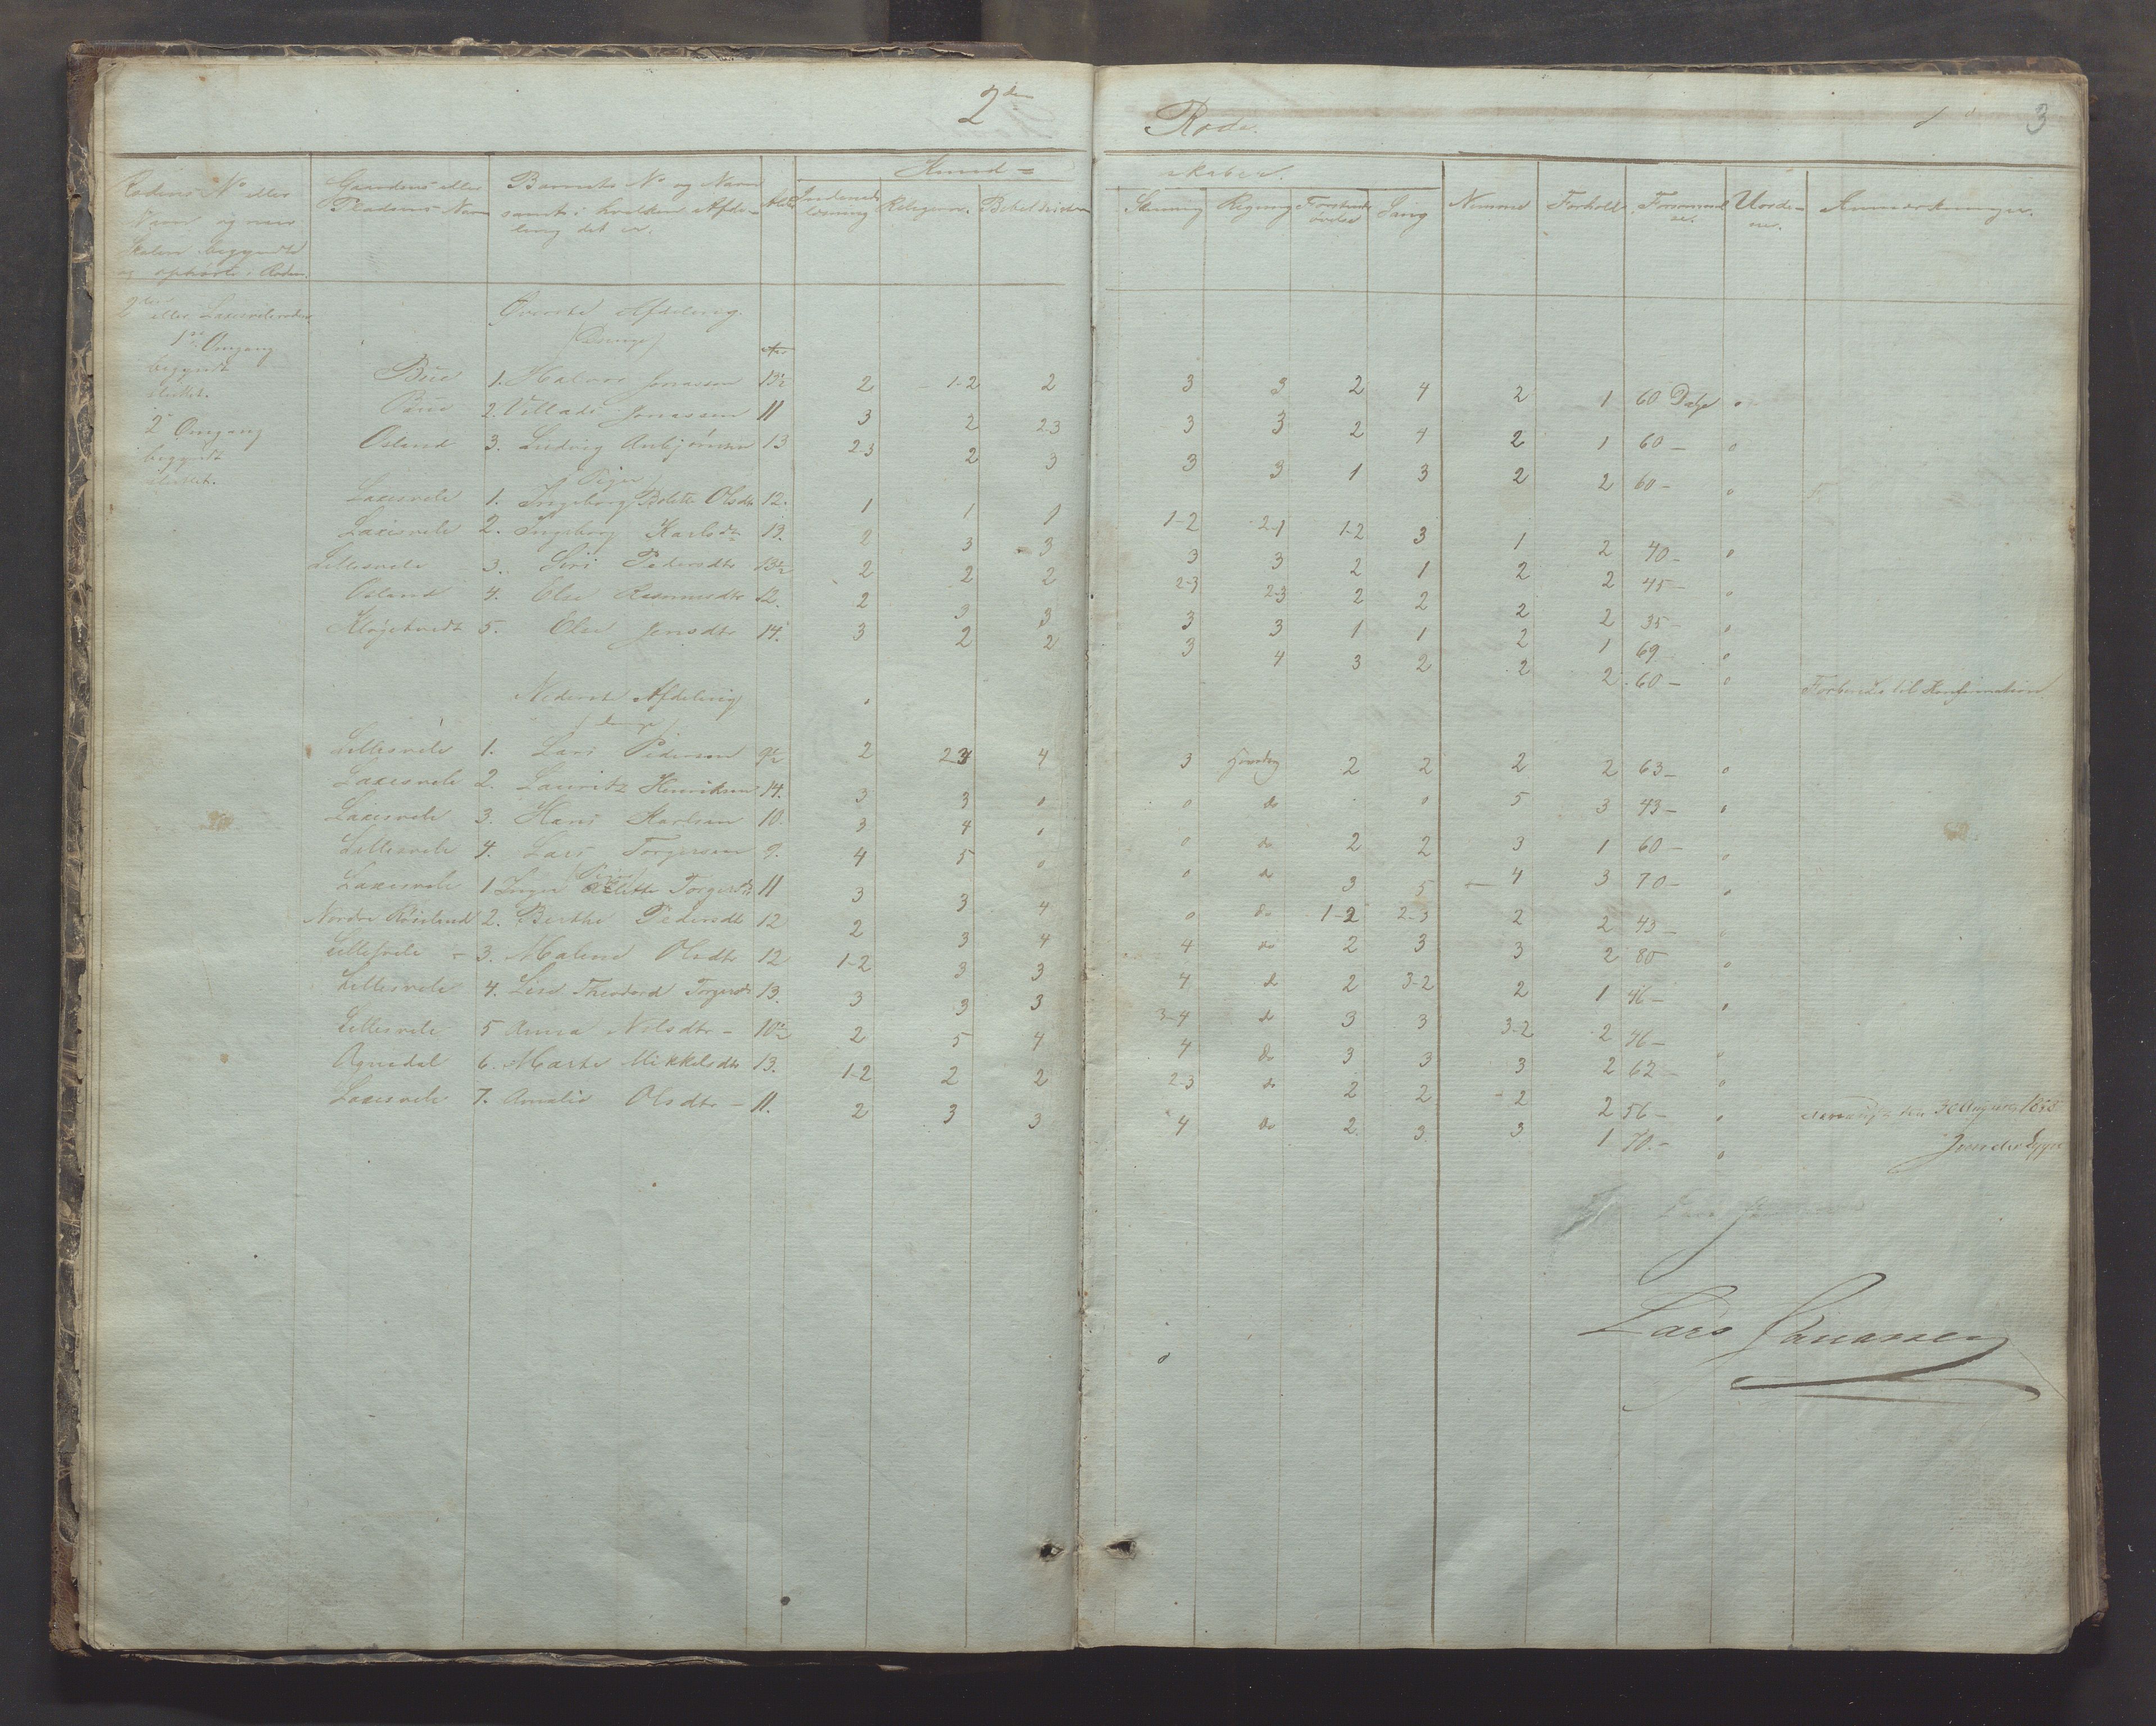 2de Rode. 3
Rodens No eller Navn og naar Skolen begyndte og ophørte i Roden.
Gaardens eller Pladsens Navn
Barnets No og Navn samt i hvilken Afdeling det er.
Kund-
skaber.
Indenadslæsning Religion. Bibelhistorie
Skrivning Regning Forstandsøvelse Sang Nemme Forhold Forsømmelse. Anmærkninger.
2den eller Laxesvelaroden Øverste Afdeling.
1ste Omgang Drenge
begyndt
sluttet.
2 Omgang
begyndt
sluttet.
Bue 1. Halvor Jonassen 13½ 2 1-2 2 3 3 2 4 2 1 60 Dage 0
Bue 2. Villads Jonassen 11 3 2 2-3 3 3 2 4 2 1 60 - 0
Osland 3. Ludvig Asbjørnsen 13 2-3 2 3 3 3 1 3 2 2 60 - 0
Piger
Laxesvele 1. Ingeborg Bolette Olsdtr 12. 1 1 1 1-2 2-1 1-2 3 1 2 40 - 0
Laxesvele 2. Ingeborg Karlsdtr 13. 2 3 3 3 3 2 1 2 2 45 - 0
Lillesvele 3. Siri Pedersdtr 13½ 2 2 2 2-3 2-3 2 2 2 2 35 - 0
Osland 4. Else Rasmusdtr 12. 2 3 3 3 3 1 1 2 1 69 0
Kløgetvedt 5. Else Jensdtr 14. 3 2 2 3 4 3 2 2 2 60 - 0 til Konfirmation.
Nederste Afdeling
Drenge
Lillesvele 1. Lars Pedersen 9½ 2 2-3 4 3 2 2 2 2 63 - 0
Laxesvele 2. Lauritz Henriksen 14. 3 3 0 0 do 0 5 3 43 - 0
Laxesvele 3. Hans Karlsen 10. 3 4 0 0 do 2 2 3 1 60 - 0
Lillesvele 4. Lars Torgersen 9. 4 5 0 0 do 3 5 4 3 70 - 0
Piger
Laxesvele 1 Inger Torgersdtr 11 3 3 4 0 do 1-2 2-3 2 2 43 - 0
Nordre 2. Berthe Pedersdtr 12 2 3 4 4 do 2 3 3 2 80 0
Lillesvele - 3. Malene Olsdtr 12 1-2 3 3 4 do 2 3-2 2 1 46 - 0
Lillesvele 4. Lise Torgersdtr 13. 3 3 3 3-4 do 3 3 3-2 2 46 - 0
Lillesvele 5 Anna Nilsdtr - 10½ 2 5 4 4 do 3 3 3 2 62 - 0
Ognedal 6. Marte Mikkelsdtr 13. 1-2 2 2 2-3 do 2 2 2 2 56 - 0 den 30 August
Laxesvele 7. Amalie Olsdtr - 11. 2 3 3 4 do 2. 3 3 1 70. - 0
Lars Jonassen